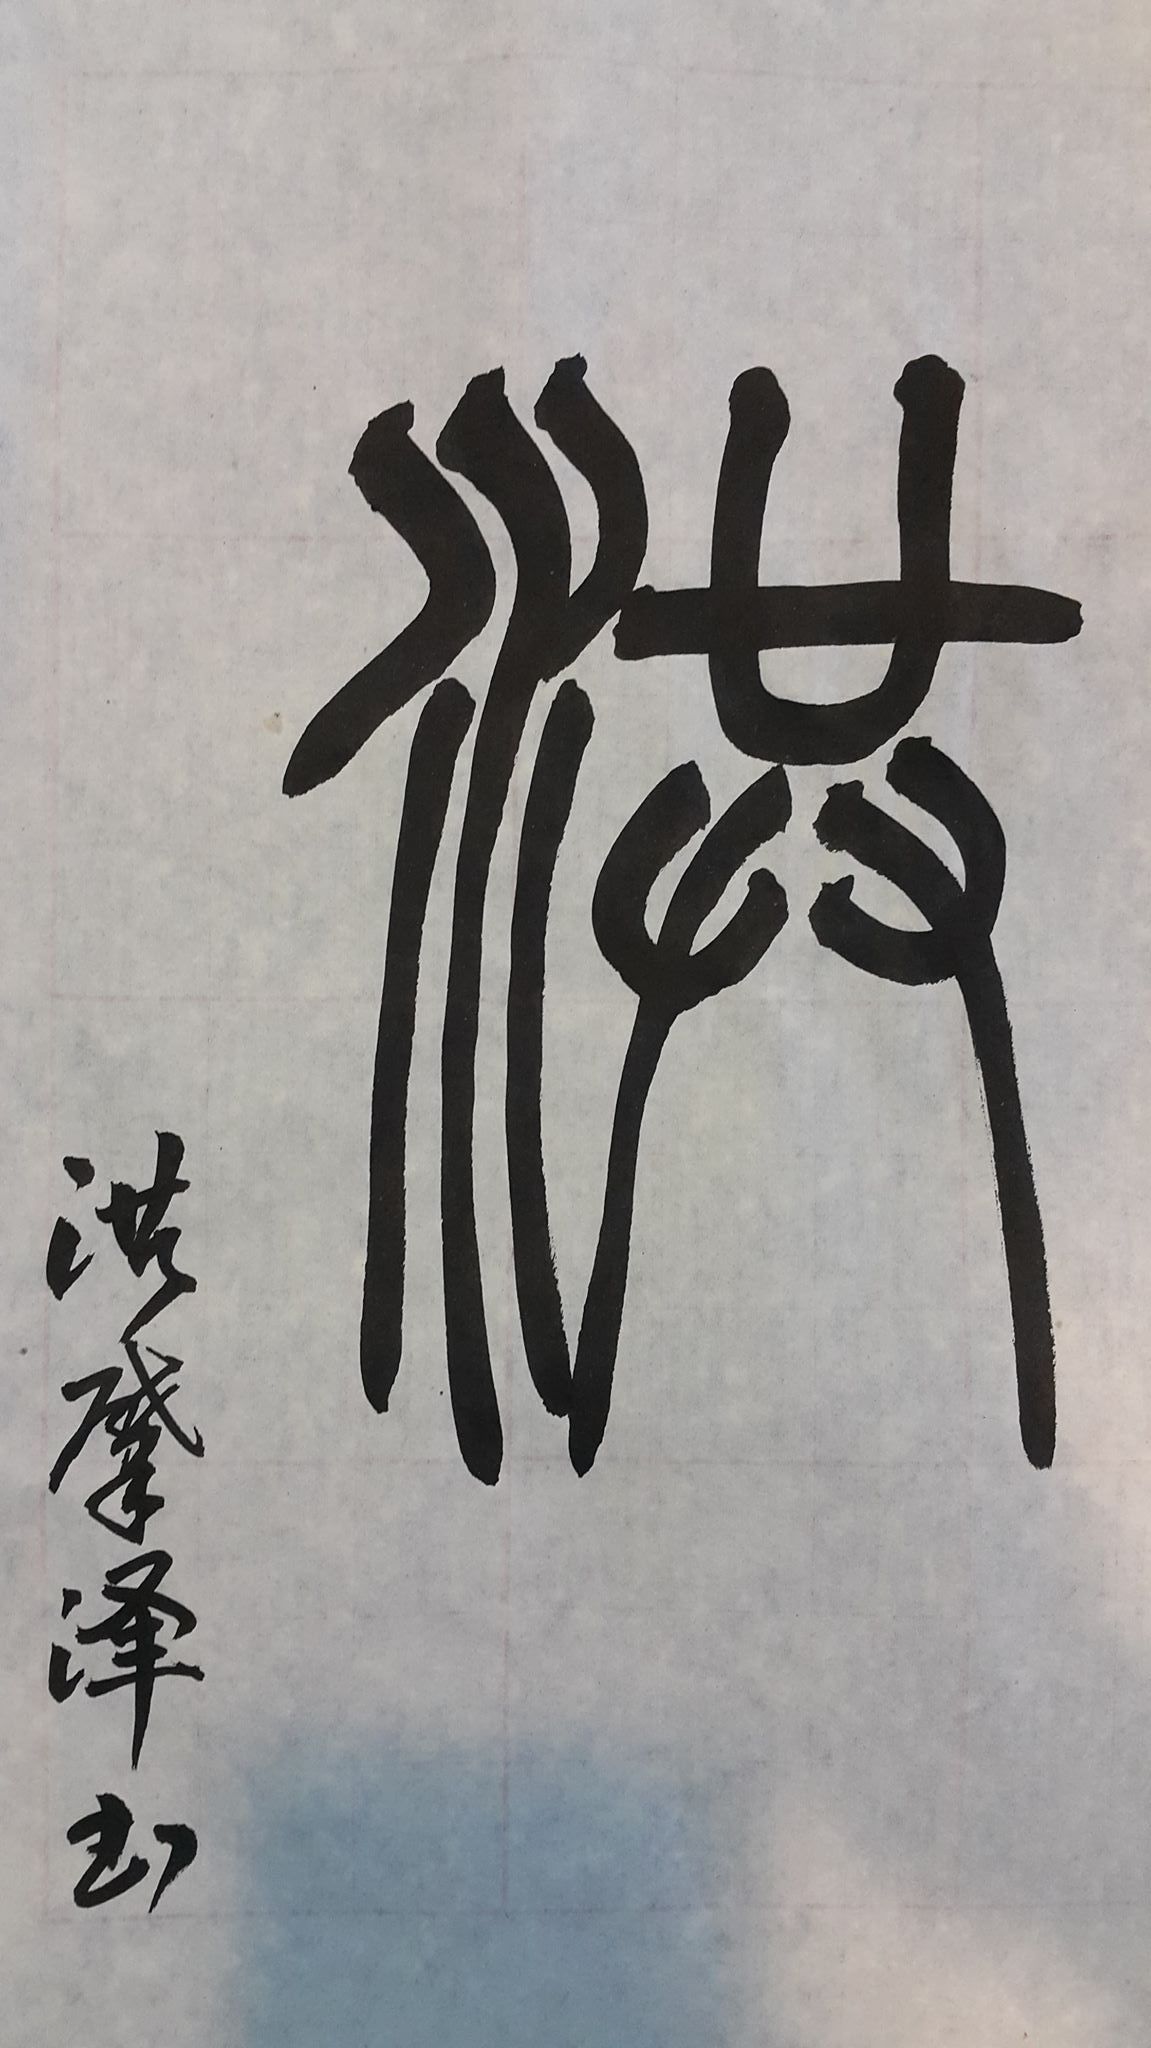 洪
洪肇泽书